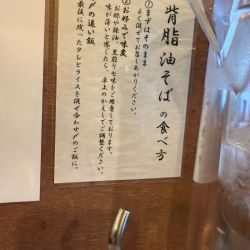 背脂油そばの食べ方
①まずはそのまま
よく混ぜてお召しあがりください。
②お好みで味変
お酢や辣油、黒煎り七味をご用意しております。
味が薄いと感じたら、卓上のかえしでご調整ください。
〆の追い飯
最後に残ったタレとライスを混ぜ合わせ〆のご飯に。